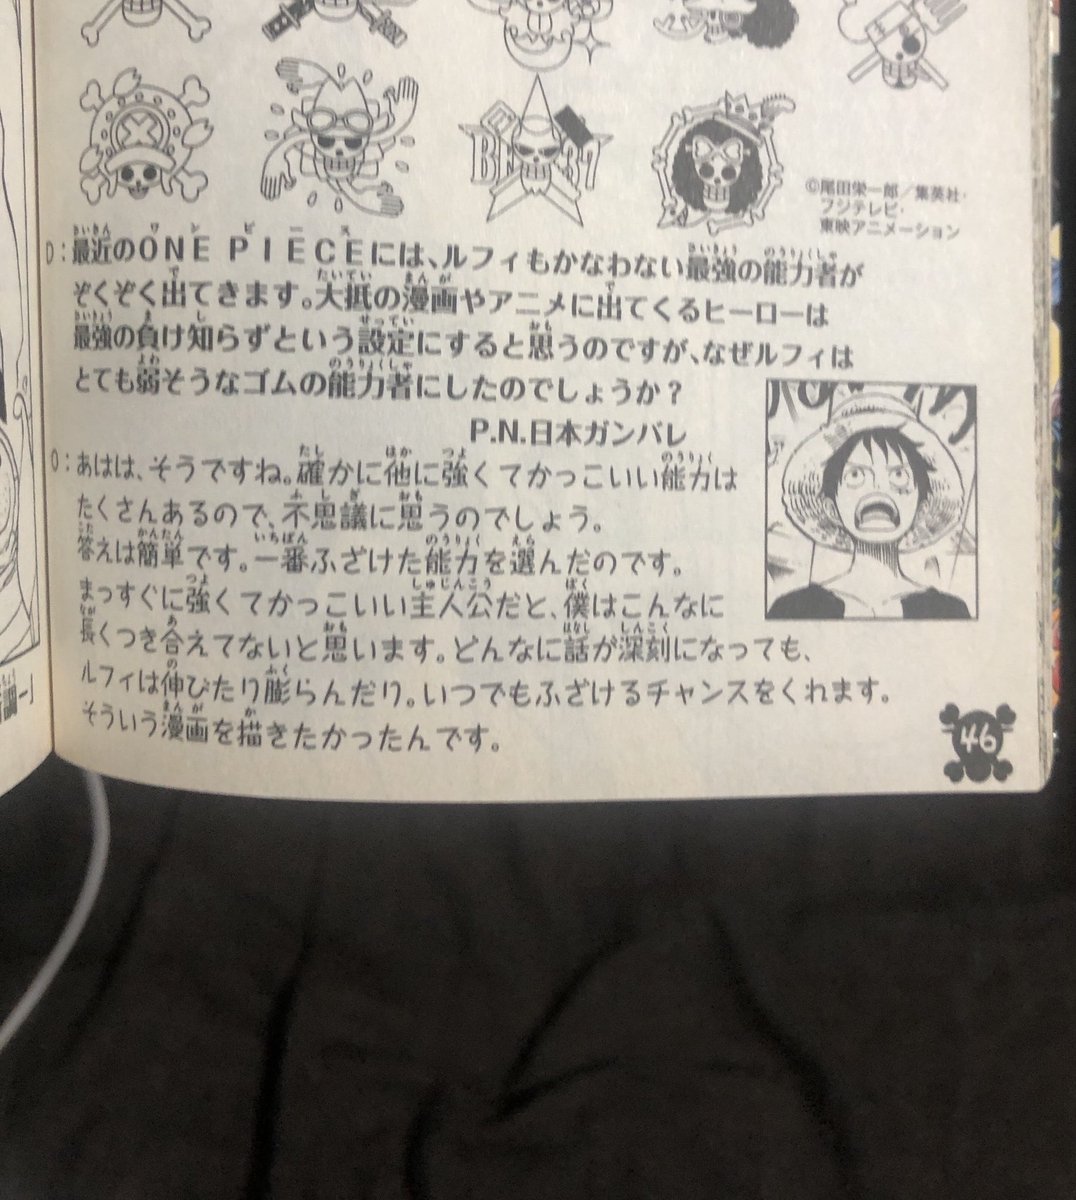 ©尾田栄一郎／集英社・
フジテレビ・
東映アニメーション
D:最近のONE PIECEには、ルフィもかなわない最強の能力者が
ぞくぞく出てきます。大抵の漫画やアニメに出てくるヒーローは
最強の負け知らずという設定にすると思うのですが、なぜルフィは
とても弱そうなゴムの能力者にしたのでしょうか？
P.N.日本ガンバレ
O:あはは、そうですね。確かに他に強くてかっこいい能力は
たくさんあるので、不思議に思うのでしょう。
答えは簡単です。一番ふざけた能力を選んだのです。
まっすぐに強くてかっこいい主人公だと、僕はこんなに
長くつき合えてないと思います。どんなに話が深刻になっても、
ルフィは伸びたり膨らんだり。いつでもふざけるチャンスをくれます。
そういう漫画を描きたかったんです。
46